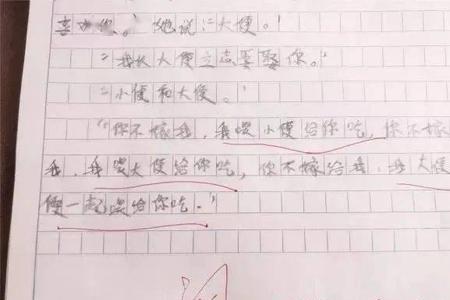 喜欢你。"她说:"大便。"
"我长大便立志要娶你。"
"小便和大便。"
"你不嫁我,我喂小便给你吃,你不嫁
我,我喂大便给你吃,你不嫁给我,我大便
便一起喂给你吃。"